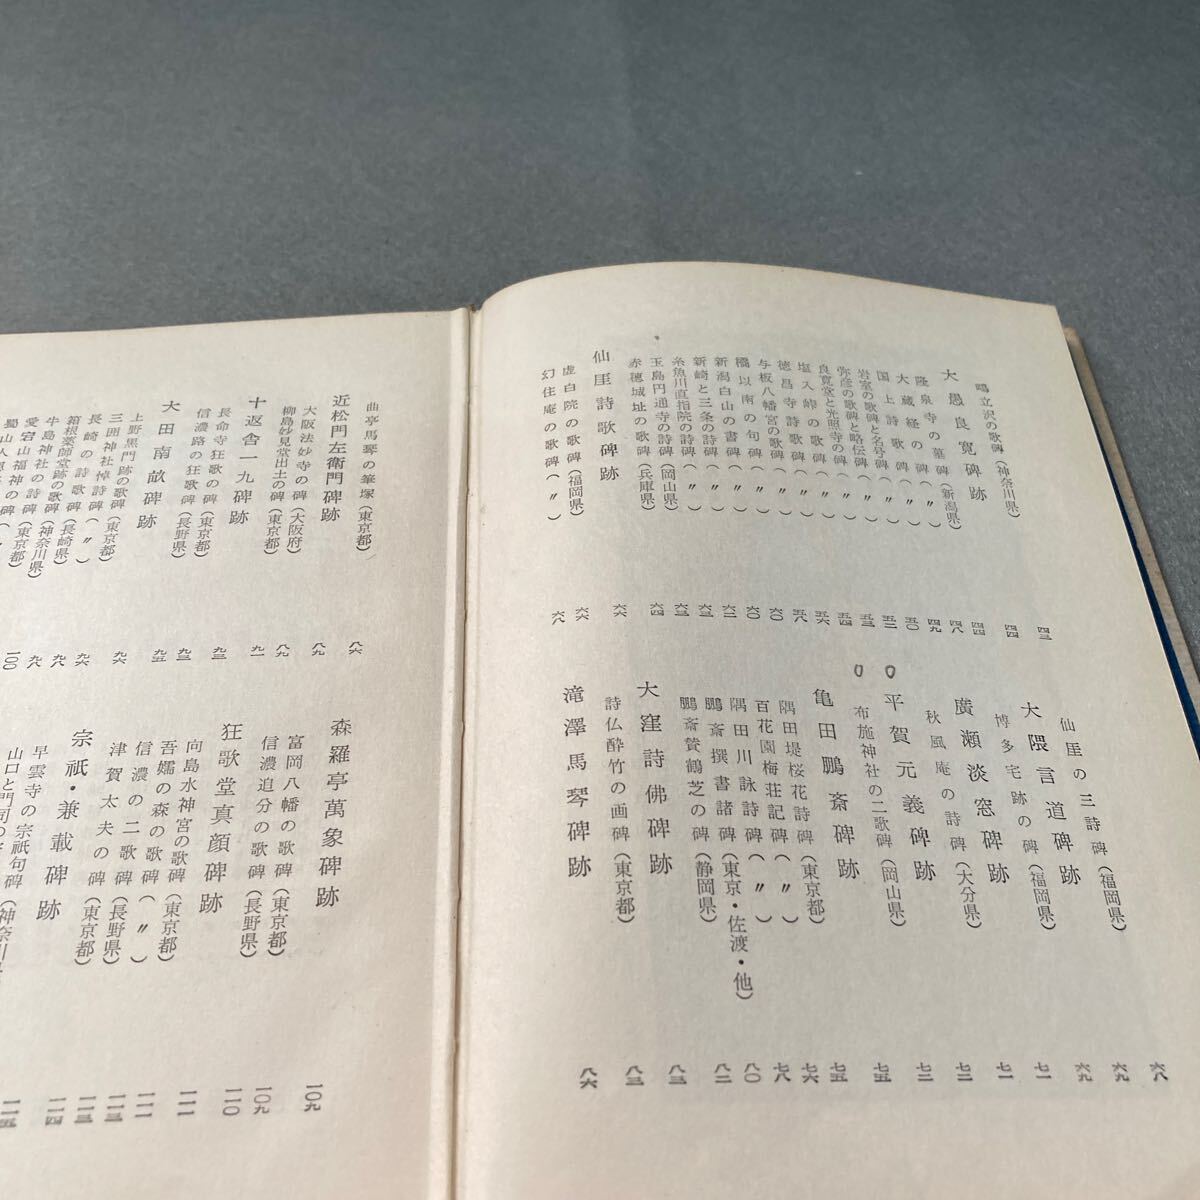 鴫立沢の歌碑(神奈川県) 四三
大愚良寛碑跡 四四
隆泉寺の墓碑(新潟県) 四四
大蔵経の碑(〃) 四八
国上詩歌碑(〃) 四九
岩室の歌碑と名号碑(〃) 五〇
弥彦の歌碑と略伝碑(〃) 五二
良寛堂と光照寺の碑(〃) 五三
塩入峠の歌碑(〃) 五四
徳昌寺詩歌碑(〃) 五六
与板八幡宮の歌碑(〃) 五八
橘以南の句碑(〃) 六〇
新潟白山の書碑(〃) 六〇
新崎と三条の詩碑(〃) 六二
糸魚川直指院の詩碑(〃) 六三
玉島円通寺の詩碑(岡山県) 六三
赤穂城址の歌碑(兵庫県) 六四
仙厓詩歌碑跡 六六
虚白院の歌碑(福岡県) 六六
幻住庵の歌碑(〃) 六八
仙厓の三詩碑(福岡県) 六八
大隈言道碑跡 六九
博多宅跡の碑(福岡県) 六九
廣瀬淡窓碑跡 七一
秋風庵の詩碑(大分県) 七一
平賀元義碑跡 七二
布施神社の二歌碑(岡山県) 七二
亀田鵬斎碑跡 七五
隅田堤桜花詩碑(東京都) 七五
百花園梅荘記碑(〃) 七六
隅田川詠詩碑(〃) 七八
鵬斎撰書諸碑(東京・佐渡・他) 八〇
鵬斎賛鶴芝の碑(静岡県) 八二
大窪詩佛碑跡 八三
詩仏酔竹の画碑(東京都) 八三
滝澤馬琴碑跡 八六
曲亭馬琴の筆塚(東京都) 八六
近松門左衛門碑跡 八九
大阪法妙寺の碑(大阪府) 八九
柳島妙見堂出土の碑(東京都) 九一
十返舎一九碑跡 九三
長命寺狂歌の碑(東京都) 九三
信濃路の狂歌碑(長野県) 九五
大田南畝碑跡 九六
上野黒門跡の歌碑(東京都) 九六
三囲神社悼詩碑(〃) 九八
長崎の詩歌碑(長崎県) 九八
箱根薬師堂跡の歌碑(神奈川県) 一〇〇
牛島神社の詩碑(東京都)
愛宕山福神の碑(〃)
森羅亭萬象碑跡 一〇九
富岡八幡の歌碑(東京都) 一〇九
信濃追分の歌碑(長野県) 一一〇
狂歌堂真顔碑跡 一一一
向島水神宮の歌碑(東京都) 一一一
吾嬬の森の歌碑(〃) 一一三
信濃の二歌碑(長野県) 一一三
津賀太夫の碑(東京都) 一一四
宗祇・兼載碑跡 一一五
早雲寺の宗祇句碑(神奈川
山口と門司の